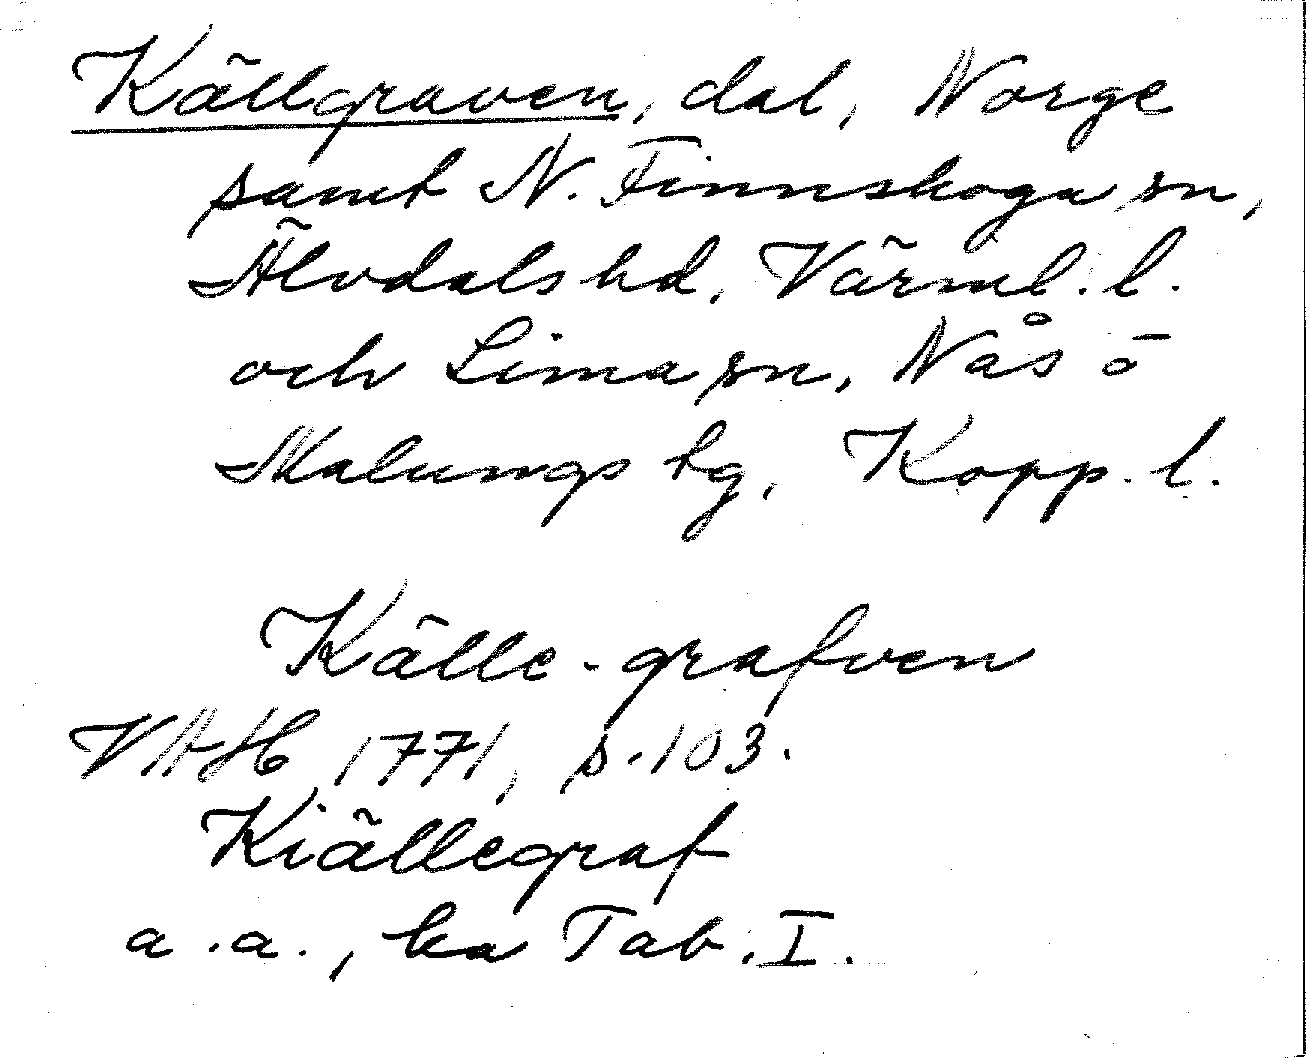 Källgraven, dal, Norge
samt N. Finnskoga sn,
Älvdals hd, Värml. l.
och Lima sn, Nås o
Malungs tg, Kopp. l.
Källe-grafven
VAH 1771, s. 103.
Kiällegraf
a.a., ka Tab. I.